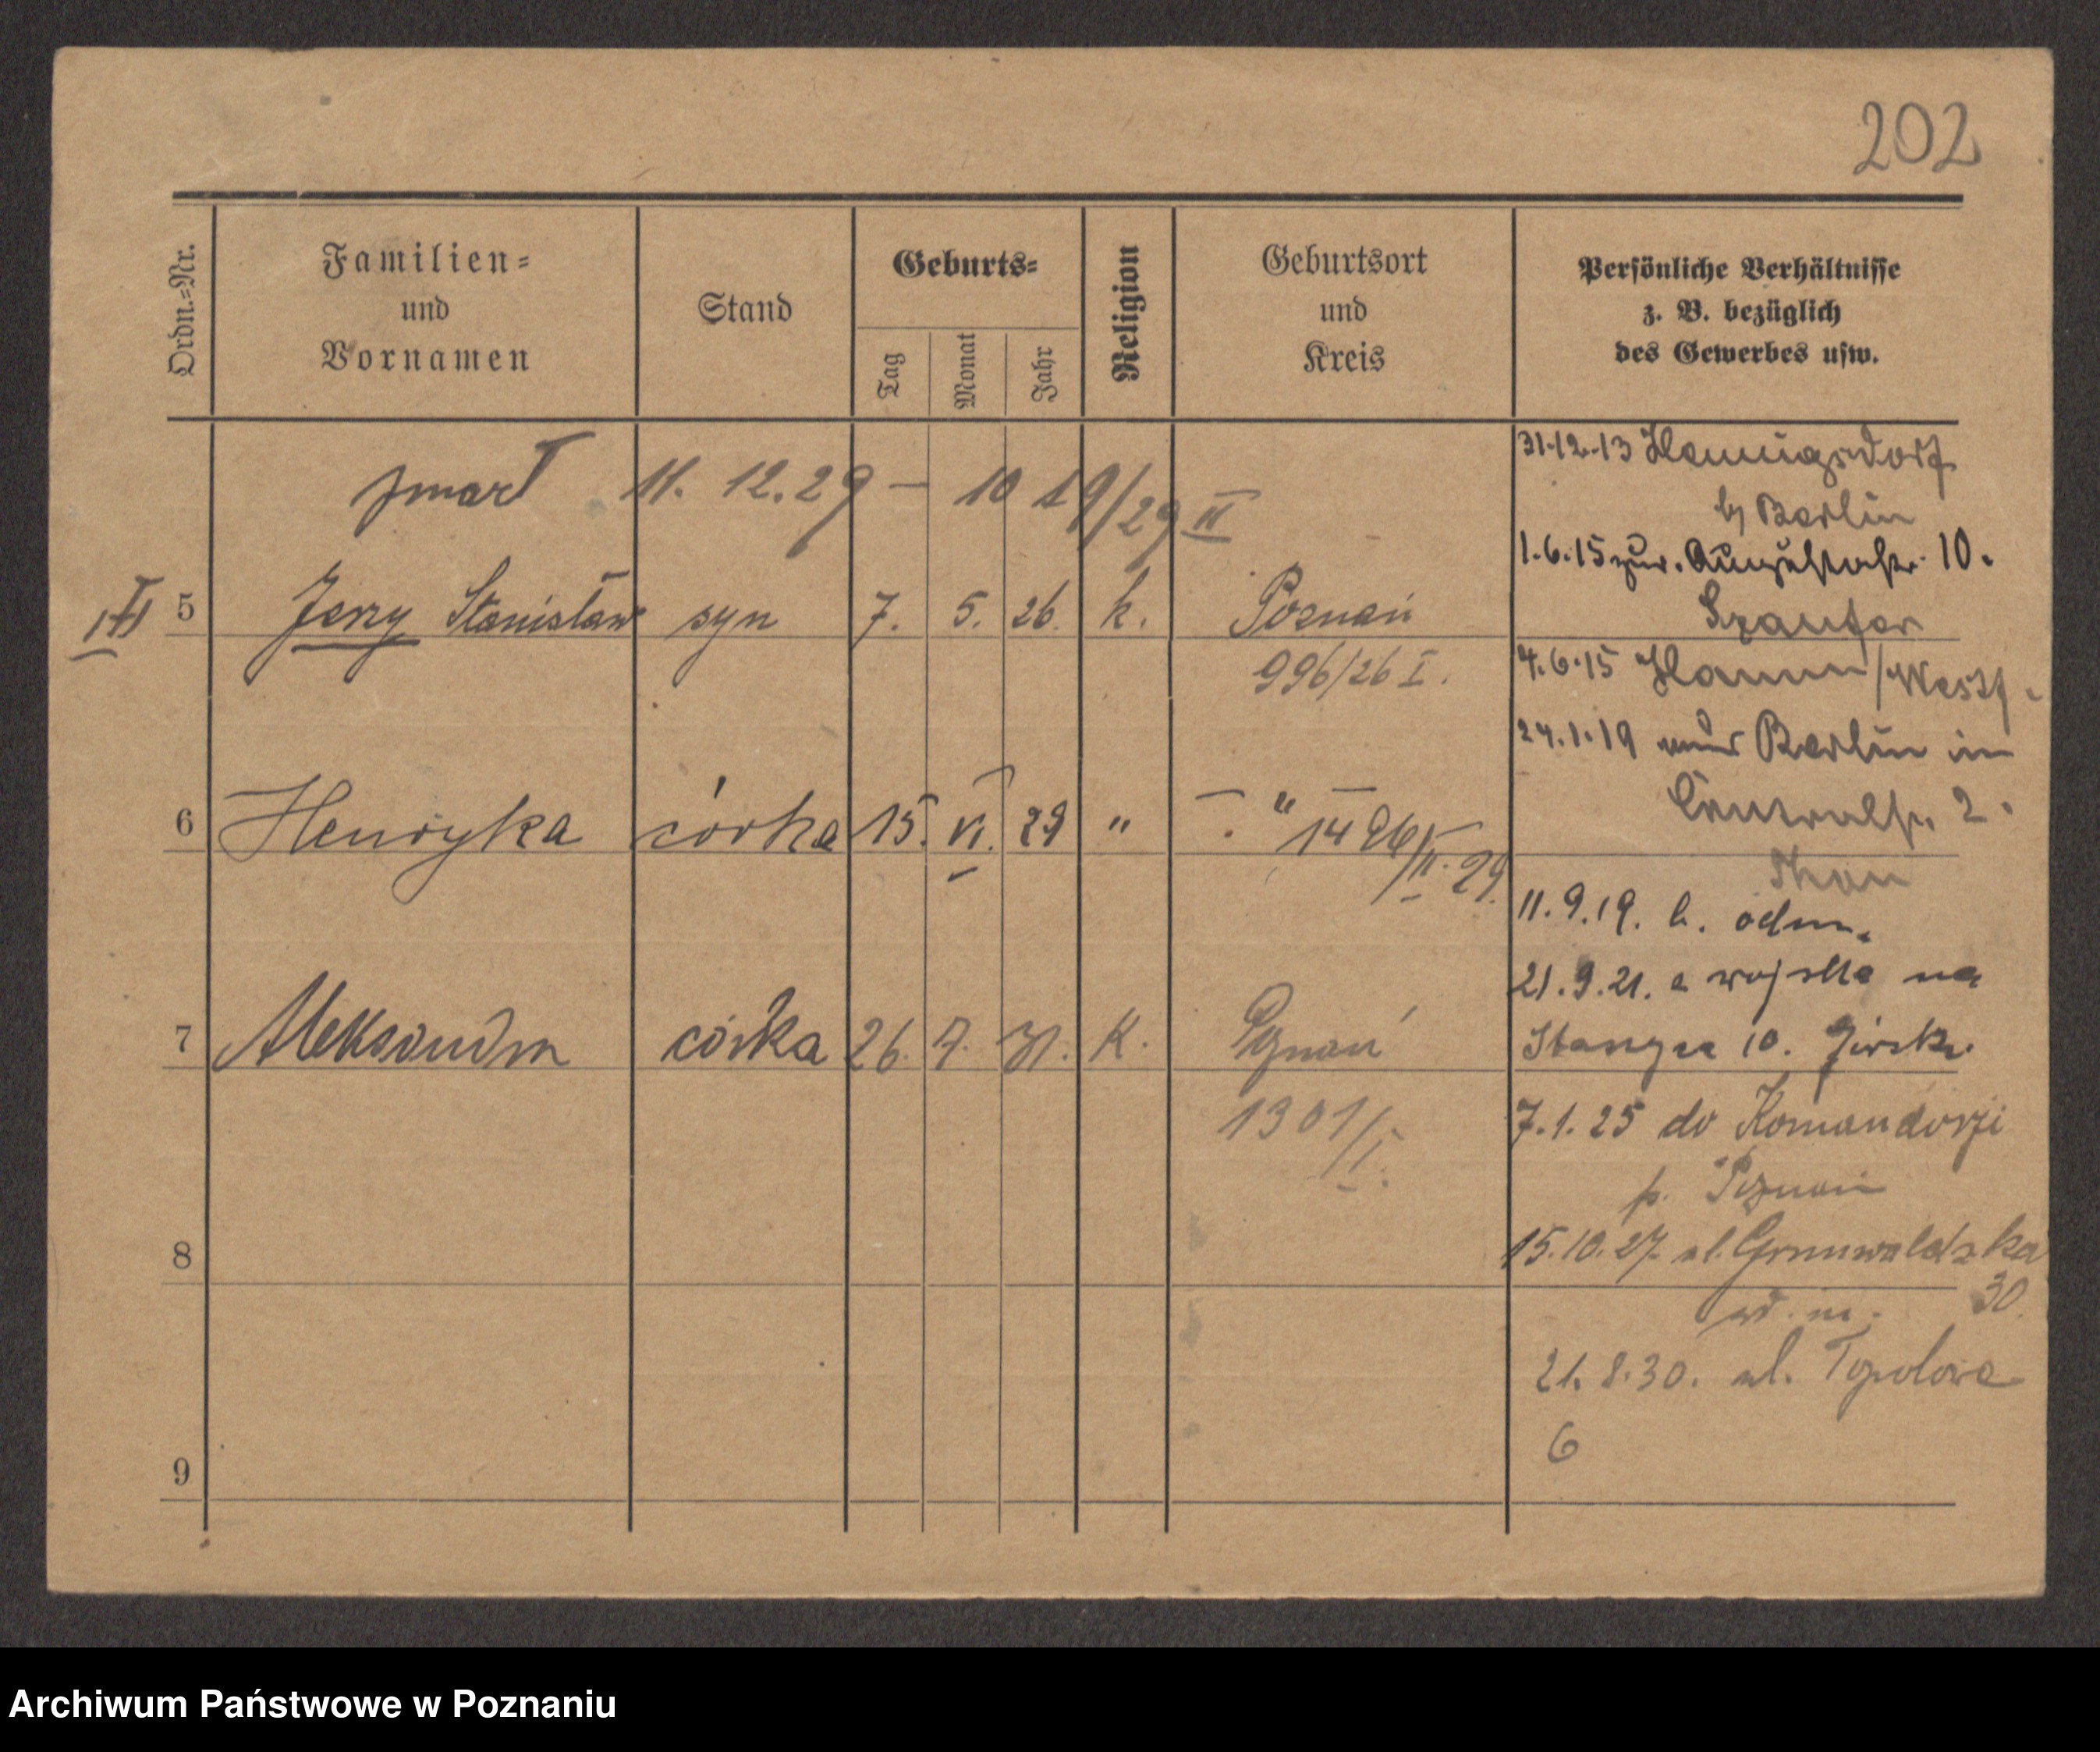 202
Ordn.=Nr.
Familien=
und
Vornamen
Stand
Geburts=
Tag
Monat
Jahr
Religion
Geburtsort
und
Kreis
Persönliche Verhältnisse
z. B. bezüglich
des Gewerbes usw.
zmarł 11. 12. 29 – 1019/29 II
5 Jerzy Stanisław syn 7. 5. 26. k. Poznań
996/26 I.
6 Henryka córka 15. VI. 29 " – " –
1496/II. 29.
7 Aleksandra córka 26. 7. 31. K. Poznań
1301/I.
8
9
31.12.13 Hennigsdorf
b/ Berlin
1.6.15 zur. Augustastr. 10.
4.6.15 Hamm/Westf.
24.1.19 Berlin in
Centralstr. 2.
11.9.19. b. odm.
21.9.21. z wojska na
10.
7.1.25 do Komandorji
p. Poznań
15.10.27. ul. Grunwaldzka
30.
21. 8. 30. ul. Topolowa
6
Archiwum Państwowe w Poznaniu